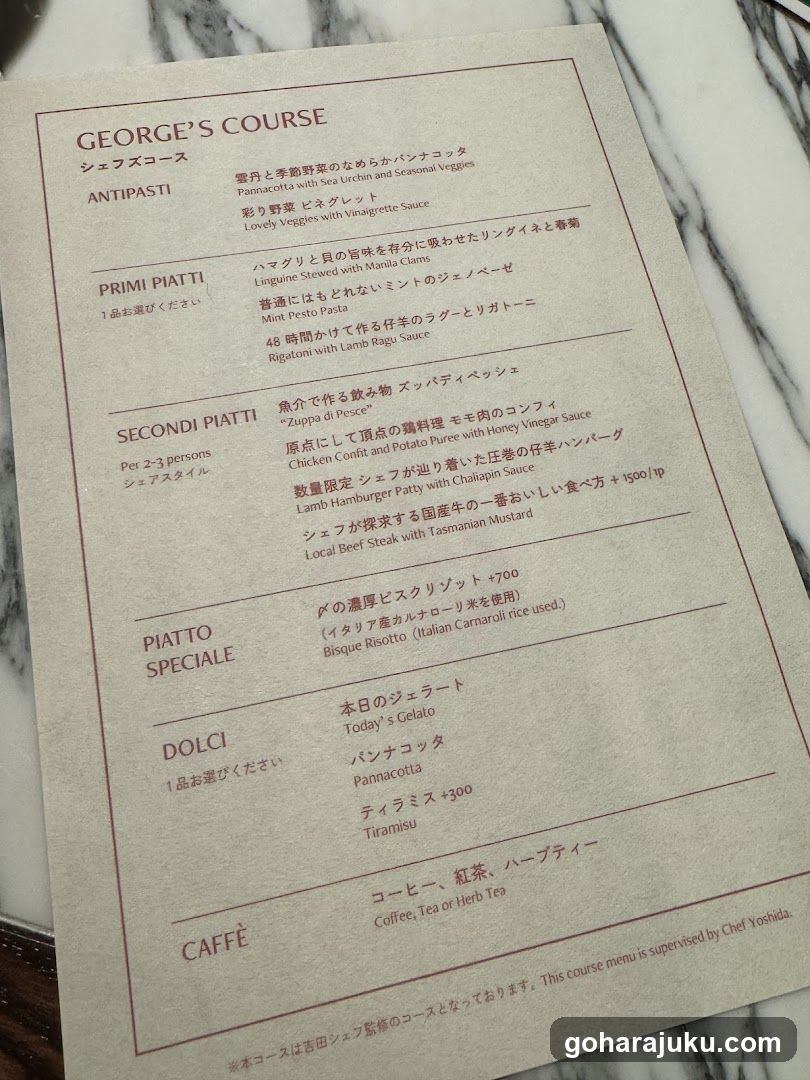 GEORGE'S COURSE
シェフズコース
ANTIPASTI
雲丹と季節野菜のなめらかパンナコッタ
Pannacotta with Sea Urchin and Seasonal Veggies
彩り野菜 ビネグレット
Lovely Veggies with Vinaigrette Sauce
PRIMI PIATTI
1品お選びください
ハマグリと貝の旨味を存分に吸わせたリングイネと春菊
Linguine Stewed with Manila Clams
普通にはもどれないミントのジェノベーゼ
Mint Pesto Pasta
48 時間かけて作る仔羊のラグーとリガトーニ
Rigatoni with Lamb Ragu Sauce
SECONDI PIATTI
Per 2-3 persons
シェアスタイル
魚介で作る飲み物 ズッパディペッシェ
"Zuppa di Pesce"
原点にして頂点の鶏料理 モモ肉のコンフィ
Chicken Confit and Potato Puree with Honey Vinegar Sauce
数量限定 シェフが辿り着いた圧巻の仔羊ハンバーグ
Lamb Hamburger Patty with Chaliapin Sauce
シェフが探求する国産牛の一番おいしい食べ方 + 1500/1p
Local Beef Steak with Tasmanian Mustard
PIATTO
SPECIALE
〆の濃厚ビスクリゾット +700
(イタリア産カルナローリ米を使用)
Bisque Risotto (Italian Carnaroli rice used.)
DOLCI
1品お選びください
本日のジェラート
Today's Gelato
パンナコッタ
Pannacotta
ティラミス +300
Tiramisu
CAFFÈ
コーヒー、紅茶、ハーブティー
Coffee, Tea or Herb Tea
※本コースは吉田シェフ監修のコースとなっております。This course menu is supervised by Chef Yoshida.
goharajuku.com